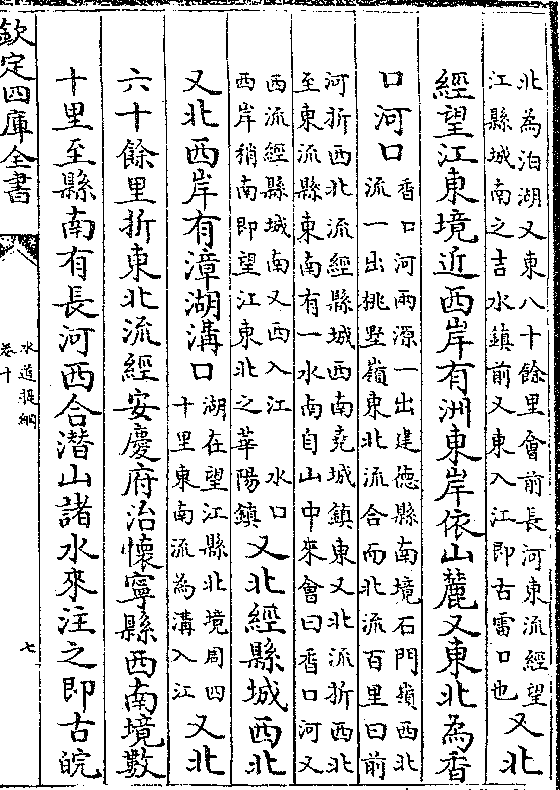 北為泊湖又東八十餘里會前長河東流經望
江縣城南之吉水鎮前又東入江即古雷口也
又北
經望江東境近西岸有洲東岸依山麓又東北為香
口河口
香口河兩源一出建德縣南境石門嶺西北
流一出桃墅嶺東北流合而北流百里曰前
河折西北流經縣城西南堯城鎮東又北流折西北
至東流縣東南有一水南自山中來會曰香口河又
西流經縣城南又西入江 水口
西岸稍南即望江東北之華陽鎮
又北經縣城西北
又北西岸有漳湖溝口
湖在望江縣北境周四
十里東南流為溝入江
又北
六十餘里折東北流經安慶府治懷寧縣西南境數
十里至縣南有長河西合潛山諸水來注之即古皖
欽定四庫全書
水道提綱
卷十
七